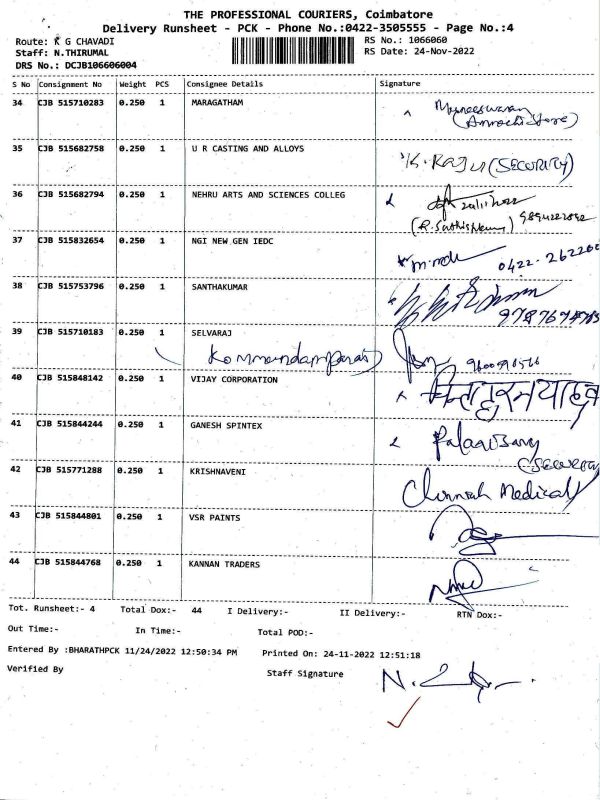 THE PROFESSIONAL COURIERS, Coimbatore
Delivery Runsheet - PCK - Phone No.:0422-3505555 - Page No.:4
Route: K G CHAVADI RS No.: 1066060
Staff: N.THIRUMAL RS Date: 24-Nov-2022
DRS No.: DCJB106606004
S No Consignment No Weight PCS Consignee Details Signature
34 CJB 515710283 0.250 1 MARAGATHAM
35 CJB 515682758 0.250 1 U R CASTING AND ALLOYS K. RAJU (SECURITY)
36 CJB 515682794 0.250 1 NEHRU ARTS AND SCIENCES COLLEG
37 CJB 515832654 0.250 1 NGI NEW GEN IEDC
38 CJB 515753796 0.250 1 SANTHAKUMAR
39 CJB 515710183 0.250 1 SELVARAJ
40 CJB 515848142 0.250 1 VIJAY CORPORATION
41 CJB 515844244 0.250 1 GANESH SPINTEX
(SECURITY
42 CJB 515771288 0.250 1 KRISHNAVENI Chinnah Medical
43 CJB 515844801 0.250 1 VSR PAINTS
44 CJB 515844768 0.250 1 KANNAN TRADERS
Tot. Runsheet:- 4 Total Dox:- 44 I Delivery:- II Delivery:- RTN Dox:-
Out Time:- In Time:- Total POD:-
Entered By :BHARATHPCK 11/24/2022 12:50:34 PM Printed On: 24-11-2022 12:51:18
Verified By Staff Signature